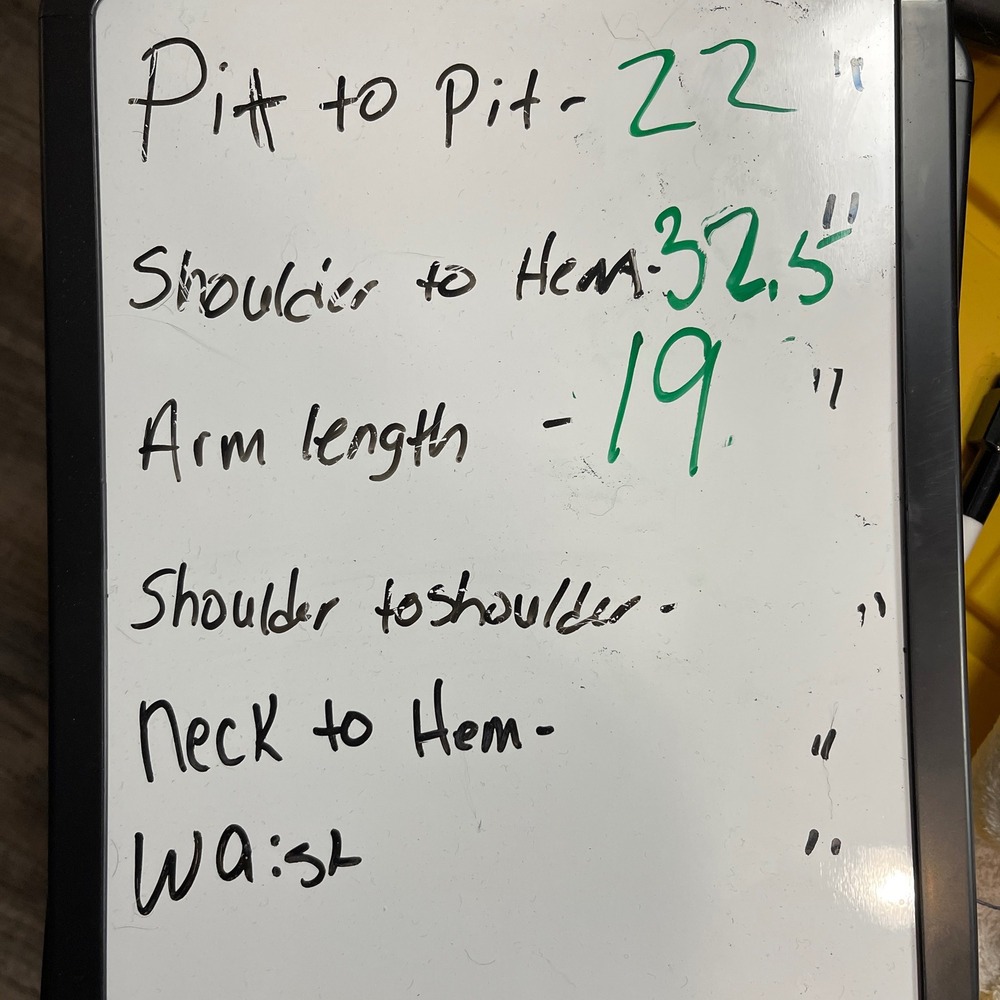 Pitt to Pit- 22 "
Shoulder to Hem- 32.5"
Arm length - 19 "
Shoulder to shoulder- "
Neck to Hem- "
Waist "